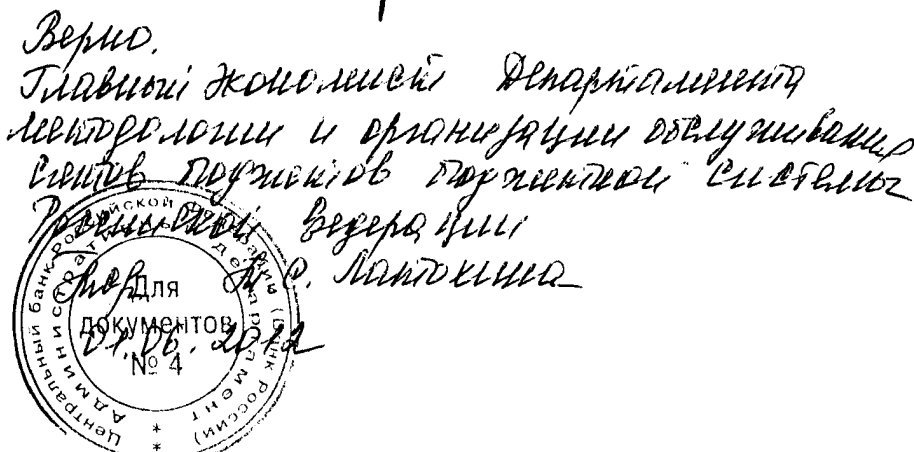 Верно.
Главный экономист Департамента
методологии и организации обслуживания
счетов бюджетов бюджетной системы
Российской Федерации
Н.С. Лантохина
01.06.2012
Центральный банк Российской Федерации (Банк России)
Административный департамент
Для
документов
№ 4
* *